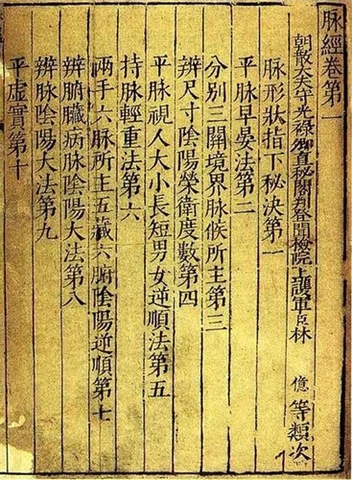 脉經卷第一
朝散大夫守光祿卿直秘閣判登聞檢院上護軍臣林億等類次
脉形狀指下秘決第一
平脉早晏法第二
分别三關境界脉候所主第三
辨尺寸陰陽榮衛度數第四
平脉視人大小長短男女逆順法第五
持脉輕重法第六
兩手六脉所主五藏六腑陰陽逆順第七
辨腑臓病脉陰陽大法第八
辨脉陰陽大法第九
平虛實第十